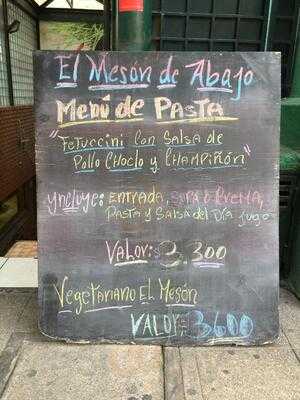 El Mesón de Abajo
Menú de Pasta
"Fetuccini con Salsa de
Pollo Choclo y Champiñon"
Yncluye: Entrada, Sopa o Crema,
Pasta y Salsa del Día Jugo
Valor: $3.300
Vegetariano El Mesón
Valor: $3600